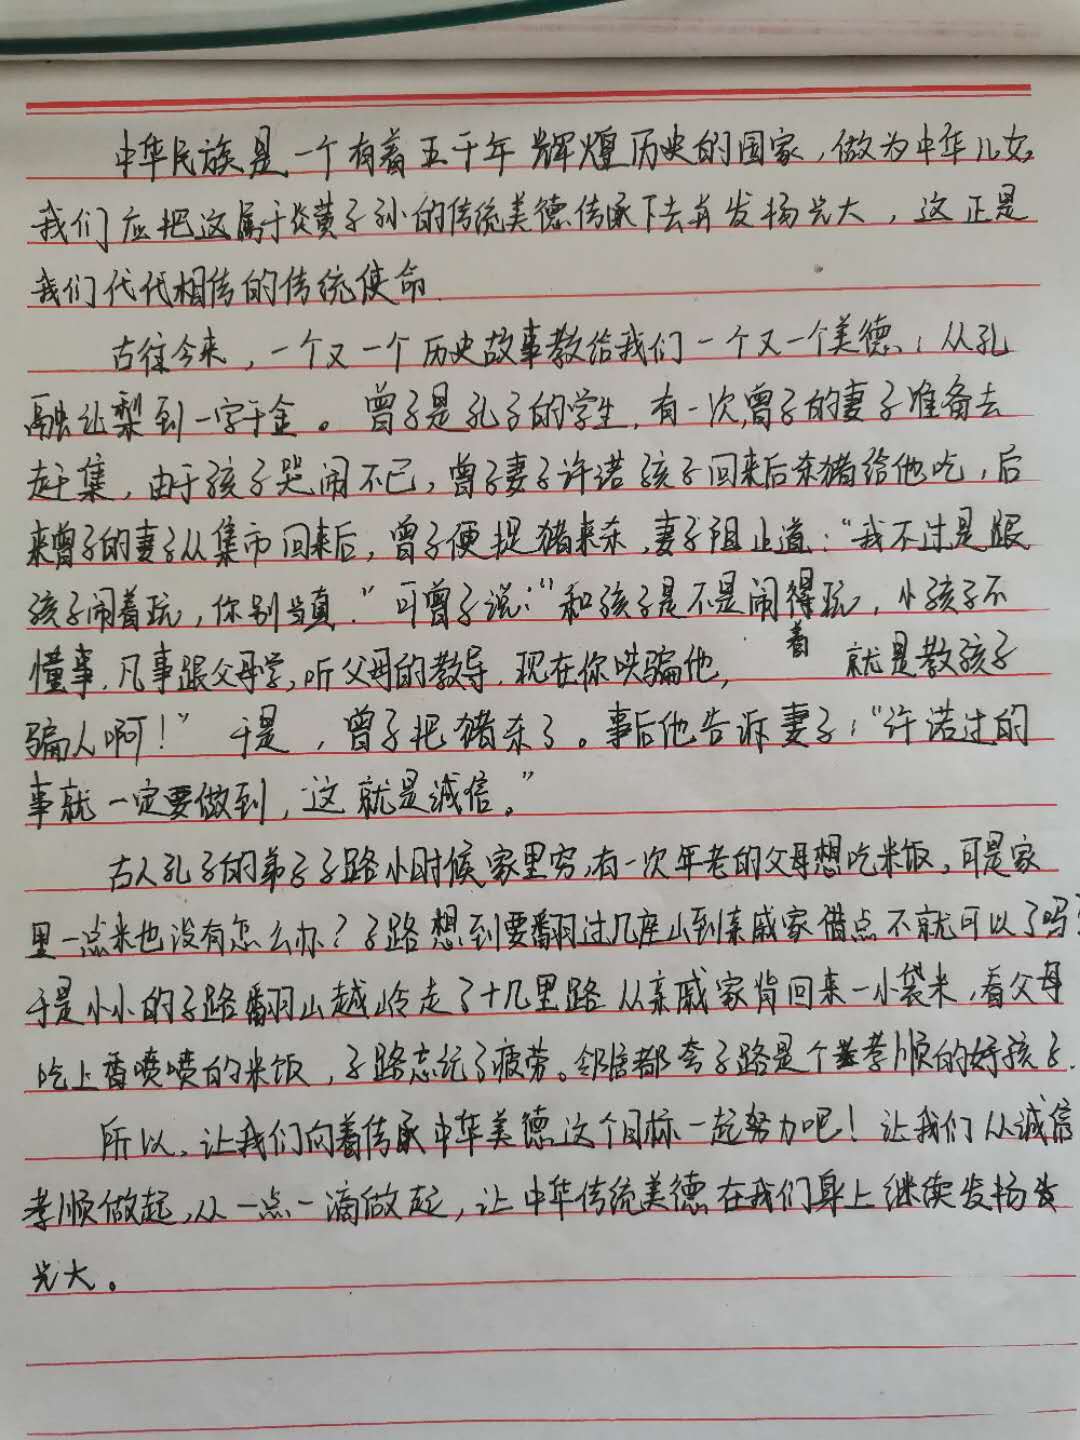 中华民族是一个有着五千年辉煌历史的国家，做为中华儿女，
我们应把这属于炎黄子孙的传统美德传承下去并发扬光大，这正是
我们代代相传的传统使命.
古往今来，一个又一个历史故事教给我们一个又一个美德：从孔
融让梨到一字千金。曾子是孔子的学生，有一次，曾子的妻子准备去
赶集，由于孩子哭闹不已，曾子妻子许诺孩子回来后杀猪给他吃，后
来曾子的妻子从集市回来后，曾子便捉猪来杀，妻子阻止道：“我不过是跟
孩子闹着玩，你别当真.”可曾子说：“和孩子是不是闹得玩，小孩子不
着
懂事，凡事跟父母学，听父母的教导，现在你哄骗他，就是教孩子
骗人啊！”于是，曾子把猪杀了。事后他告诉妻子：“许诺过的
事就一定要做到，这就是诚信。”
古人孔子的弟子子路小时候家里穷，有一次年老的父母想吃米饭，可是家
里一点米也没有怎么办？子路想到要翻过几座山到亲戚家借点不就可以了吗？
于是小小的子路翻山越岭走了十几里路从亲戚家背回来一小袋米，看父母
吃上香喷喷的米饭，子路忘记了疲劳。邻居都夸子路是个孝顺的好孩子.
所以，让我们向着传承中华美德这个目标一起努力吧！让我们从诚信
孝顺做起，从一点一滴做起，让中华传统美德在我们身上继续发扬
光大。